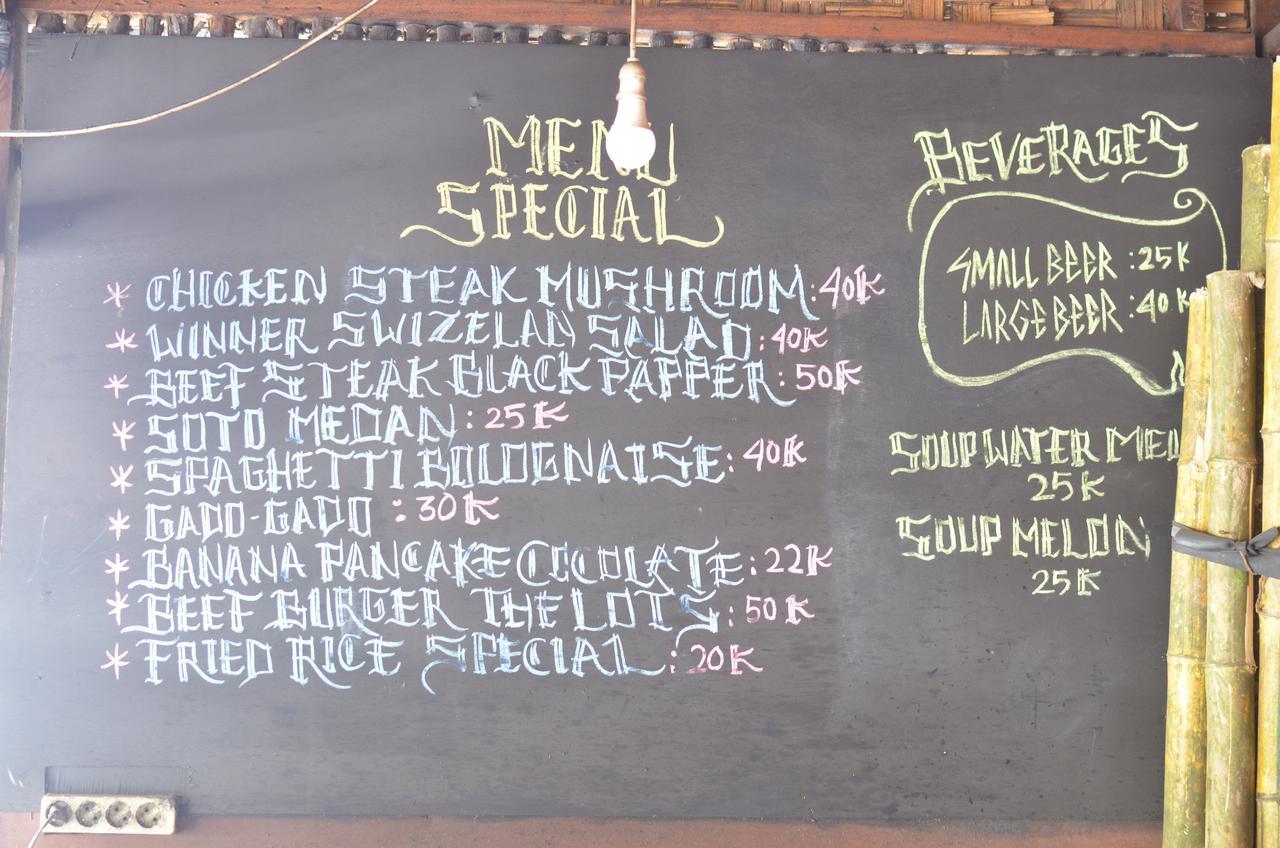 MENU
SPECIAL
* CHICKEN STEAK MUSHROOM : 40K
* WINNER SWIZELAN SALAD : 40K
* BEEF STEAK BLACK PAPPER : 50K
* SOTO MEDAN : 25K
* SPAGHETTI BOLOGNAISE : 40K
* GADO-GADO : 30K
* BANANA PANCAKE COCOLATE : 22K
* BEEF BURGER THE LOTS : 50K
* FRIED RICE SPECIAL : 20K
BEVERAGES
SMALL BEER : 25K
LARGE BEER : 40K
SOUP WATER
25K
SOUP MELON
25K